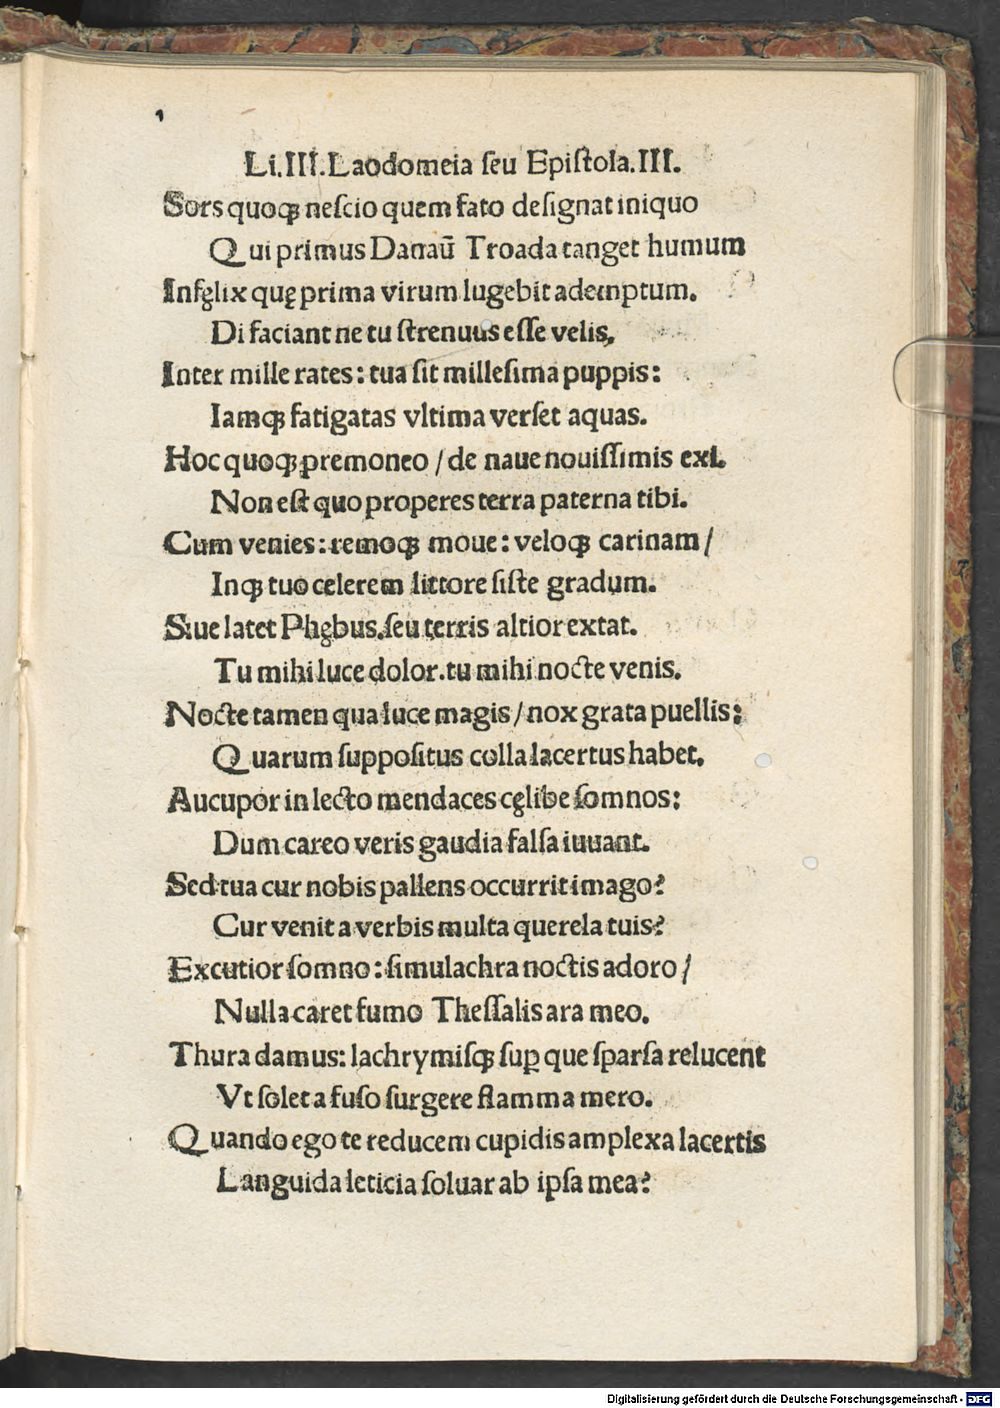 Li.III.Laodomeia ſeu Epiſtola.III.
Sors quoqꝫ neſcio quem fato deſignat iniquo
Qui primus Danaū Troada tanget humum
Infęlix quę prima virum lugebit ademptum.
Di faciant ne tu ſtrenuus eſſe velis.
Inter mille rates: tua ſit milleſima puppis:
Iamqꝫ fatigatas vltima verſet aquas.
Hoc quoqꝫ p̱remoneo / de naue nouiſſimis exi.
Non eſt quo properes terra paterna tibi.
Cum venies: remoqꝫ moue: veloqꝫ carinam /
Inqꝫ tuo celerem littore ſiſte gradum.
Siue latet Phębus. ſeu terris altior extat.
Tu mihi luce dolor. tu mihi nocte venis.
Nocte tamen qua luce magis / nox grata puellis:
Quarum ſuppoſitus colla lacertus habet.
Aucupor in lecto mendaces cęlibe ſomnos:
Dum careo veris gaudia falſa iuuant.
Sed tua cur nobis pallens occurrit imago?
Cur venit a verbis multa querela tuis?
Excutior ſomno: ſimulachra noctis adoro /
Nulla caret fumo Theſſalis ara meo.
Thura damus: lachrymiſqꝫ ſuꝑ que ſparſa relucent
Vt ſolet a fuſo ſurgere flamma mero.
Quando ego te reducem cupidis amplexa lacertis
Languida leticia ſoluar ab ipſa mea?
Digitalisierung gefördert durch die Deutsche Forschungsgemeinschaft - DFG